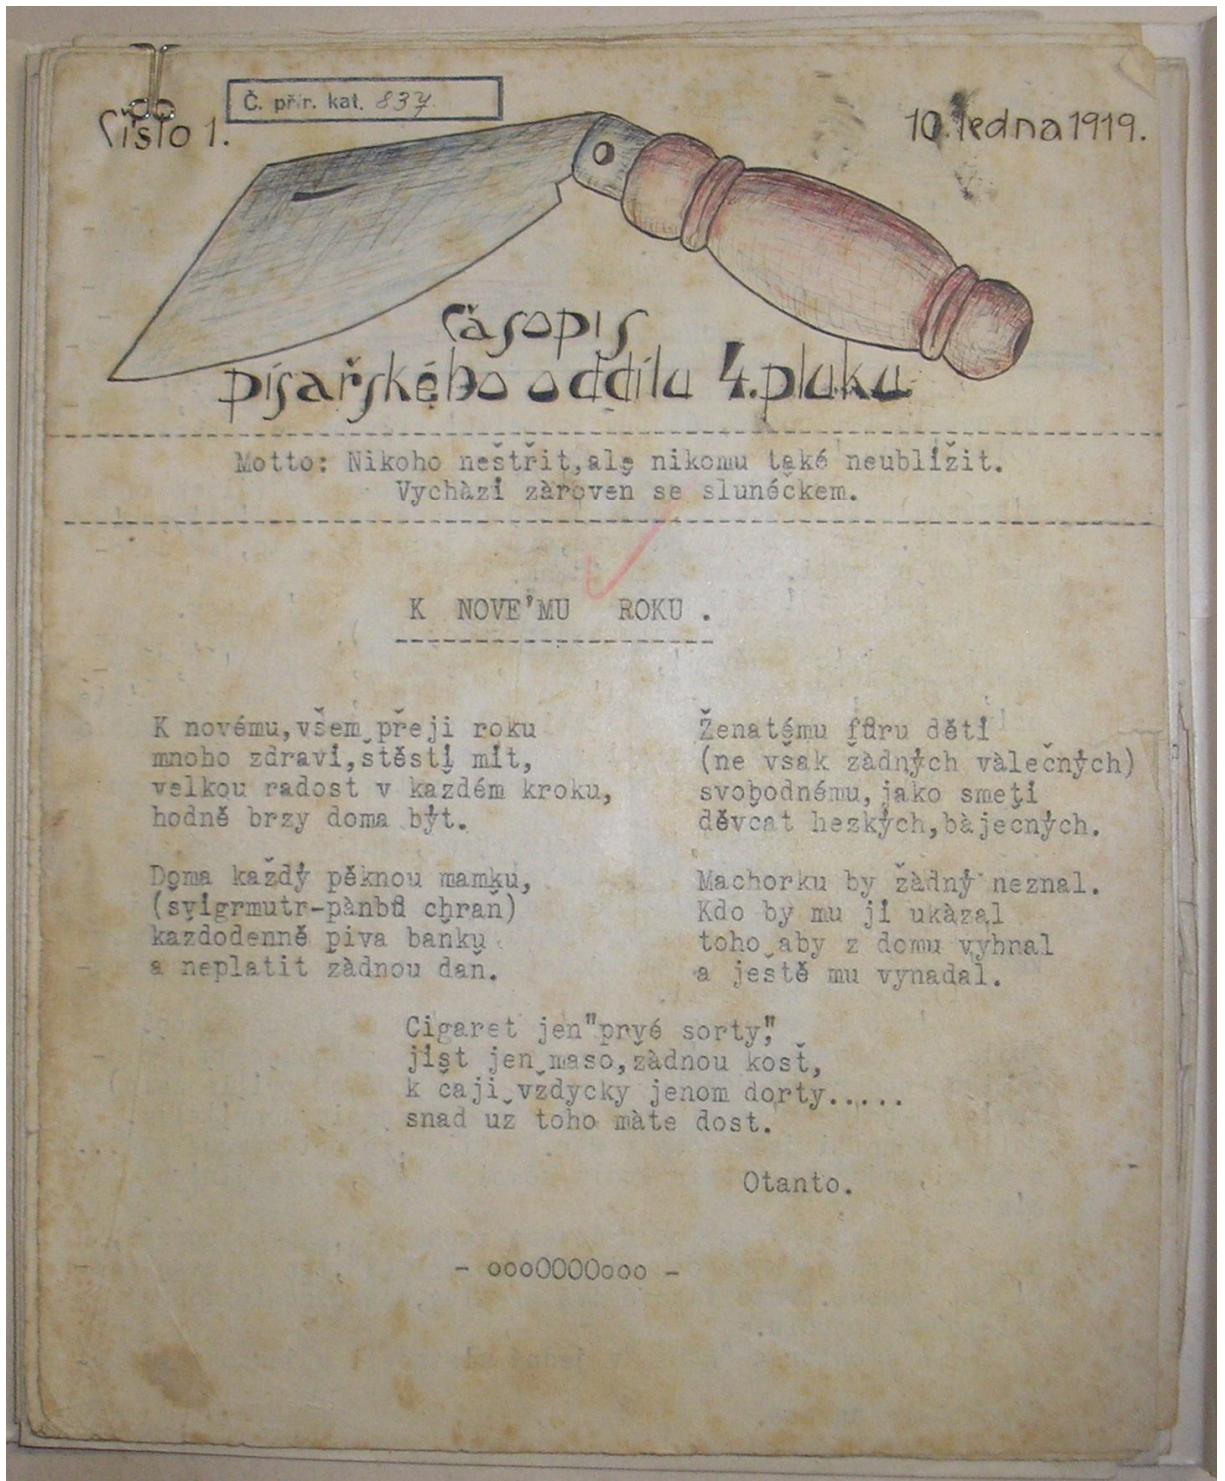 Č. přír. kat. 837
Číslo 1.
10. ledna 1919.
Časopis
písařského oddílu 4. pluku
Motto: Nikoho neštřit,ale nikomu také neublížit.
Vychàzí zàroven se slunéčkem.
K NOVE'MU ROKU .
K novému,všem přeji roku
mnoho zdraví,štěstí mít,
velkou radost v každém kroku,
hodně brzy doma být.
Doma každý pěknou mamku,
(svigrmutr-pànbů chraň)
každodenně piva baňku
a neplatit žàdnou daň.
Ženatému fůru dětí
(ne však žàdných vàlečných)
svobodnému,jako smetí
děvcat hezkých,bàjecných.
Machorku by žàdný neznal.
Kdo by mu jí ukàzal
toho aby z domu vyhnal
a ještě mu vynadal.
Cigaret jen"prvé sorty",
jíst jen maso,žàdnou kosť,
k čaji vždycky jenom dorty.....
snad uz toho màte dost.
Otanto.
- oooOOOOooo -